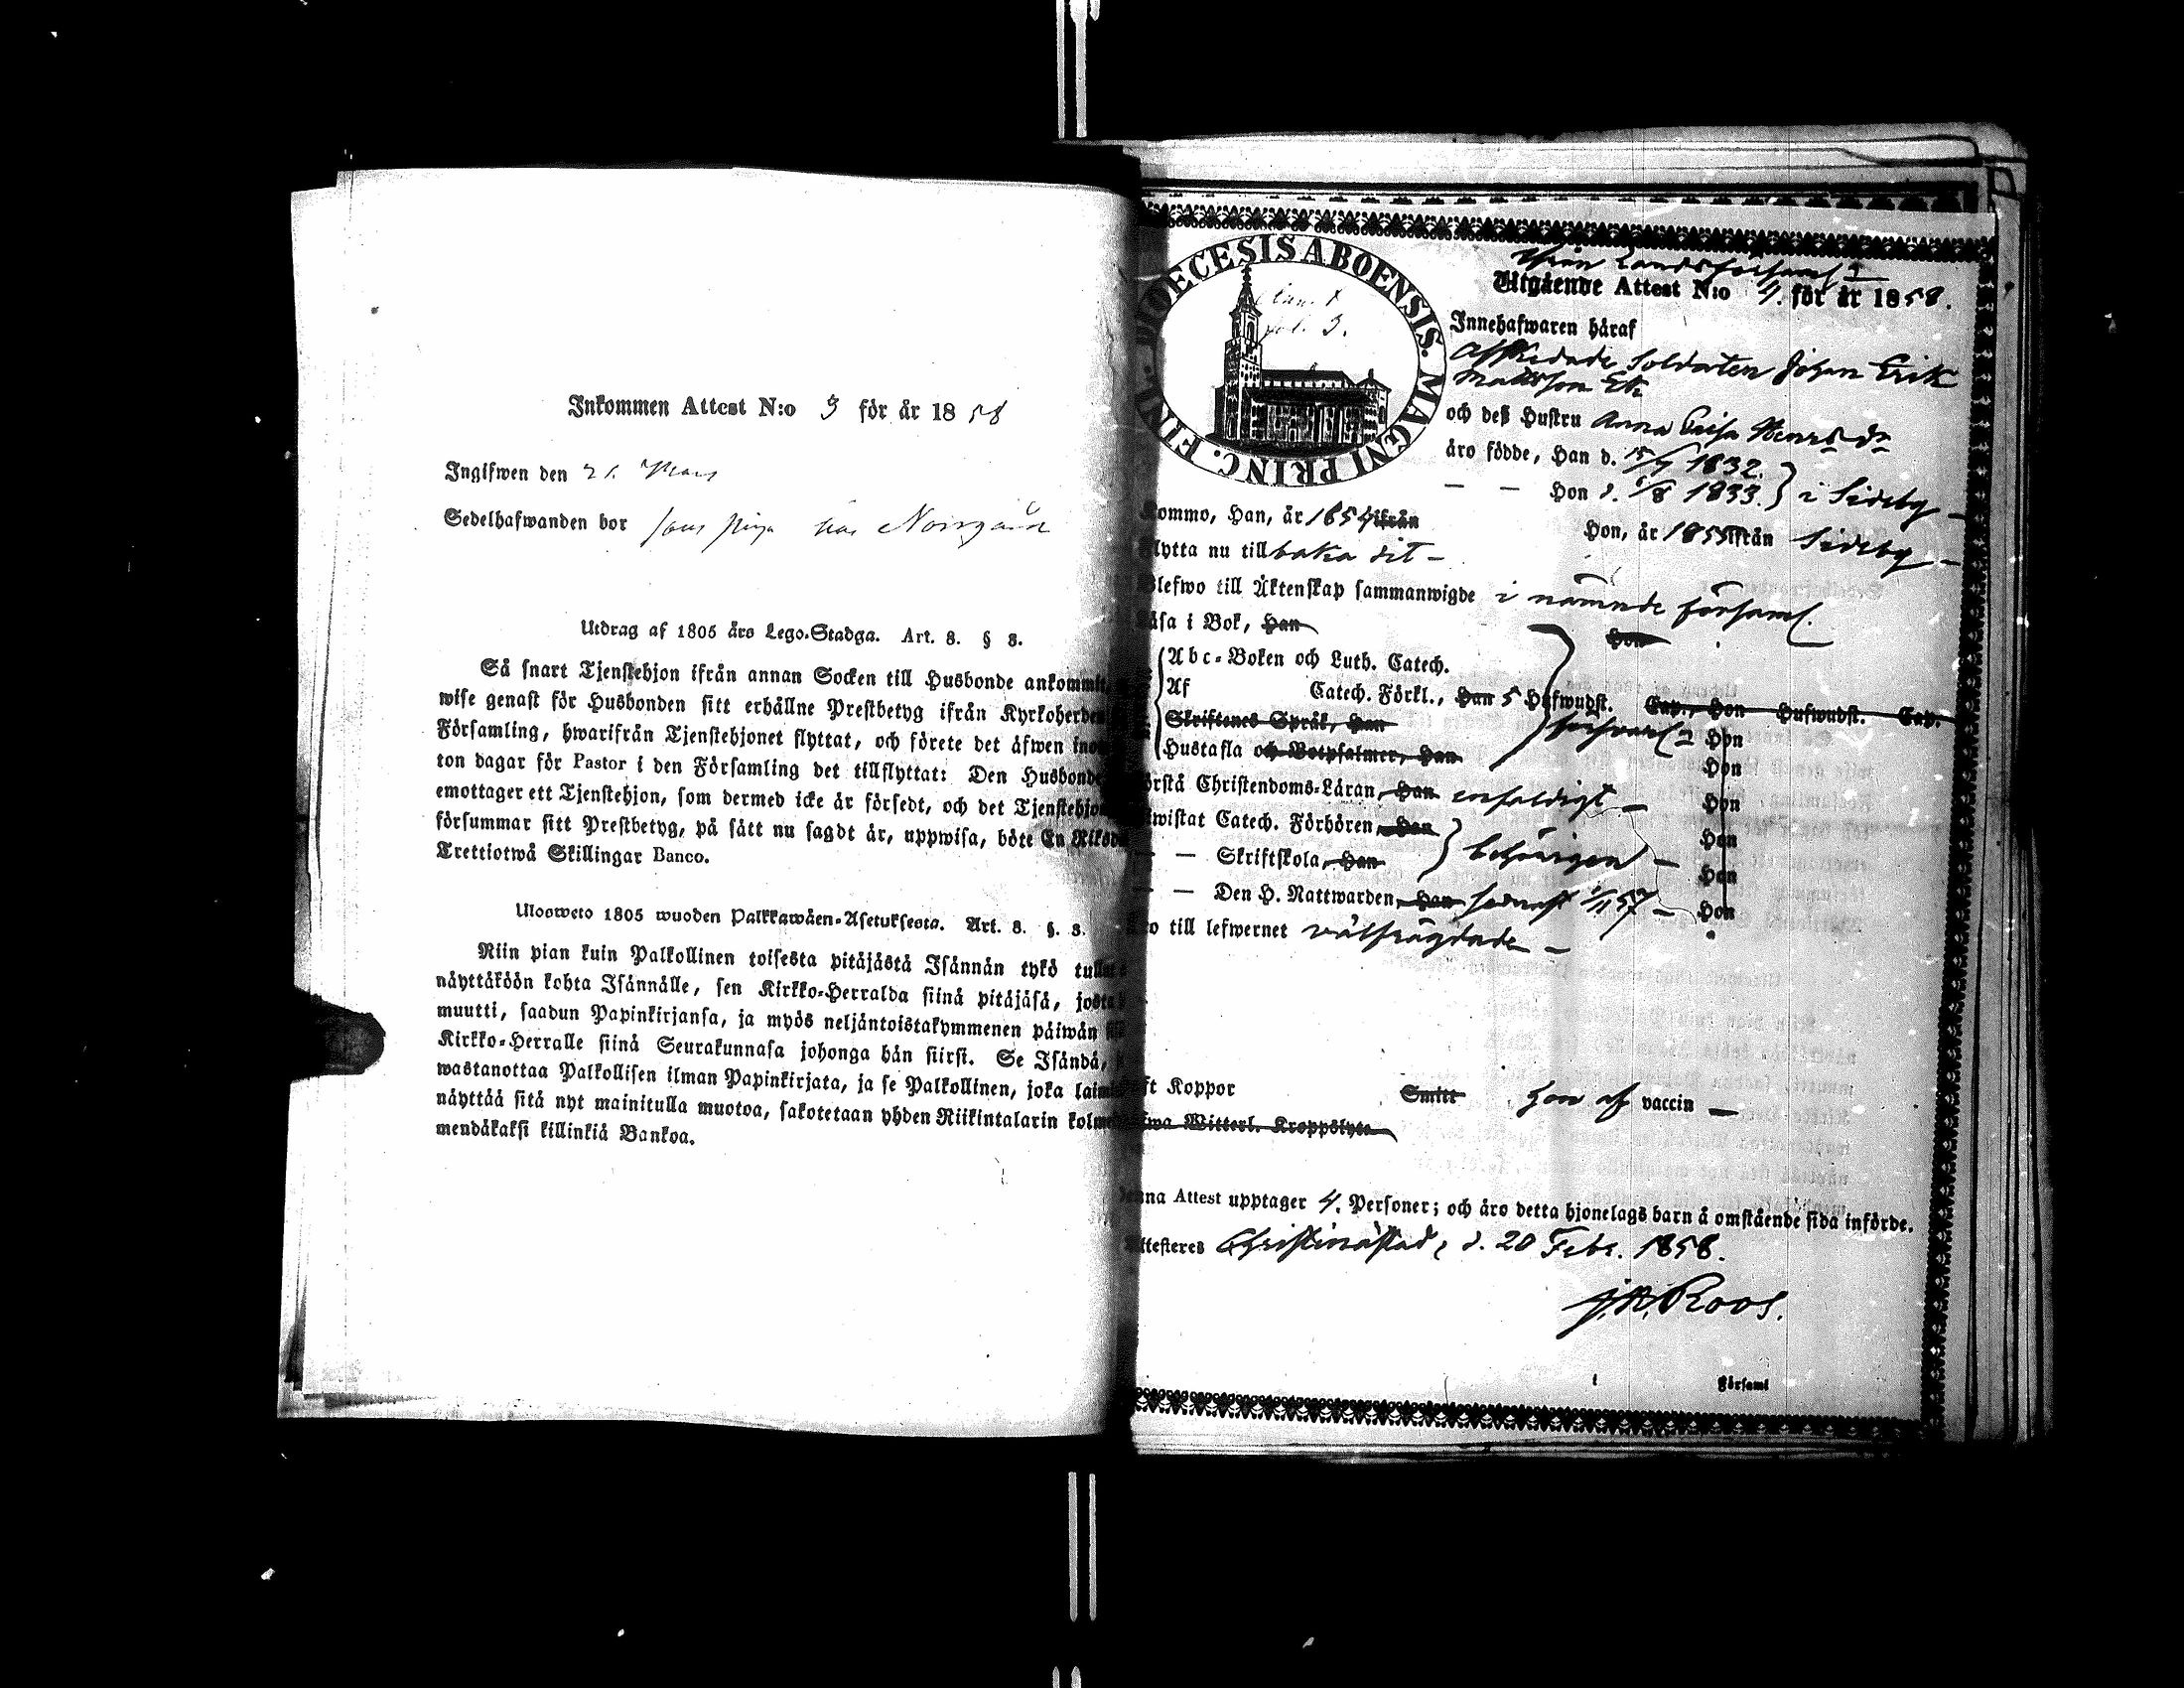 Inkommen Attest N:o 3 för år 1858
Ingifwen den 21. Mars
Sedelhafwanden bor hos Norrgård
Utdrag af 1805 års Lego-Stadga. Art. 8. § 8.
Så snart Tjenstehjon ifrån annan Socken till Husbonde ankommit,
wise genast för Husbonden sitt erhållne Prestbetyg ifrån Kyrkoherden
Församling, hwarifrån Tjenstehjonet flyttat, och förete det äfwen inom
ton dagar för Pastor i den Församling det tillflyttat: Den Husbonde
emottager ett Tjenstehjon, som dermed icke är försedt, och det Tjenstehjon
försummar sitt Prestbetyg, på sätt nu sagdt är, uppwisa, böte En Riksd
Trettiotwå Skillingar Banco.
Ulosweto 1805 wuoden Palkkawäen-Asetuksesta. Art. 8. §. 8.
Niin pian kuin Palkollinen toisesta pitäjästä Isännän tykö tullut
näyttäköön kohta Isännälle, sen Kirkko-Herralda siinä pitäjäsä, josta
muutti, saadun Papinkirjansa, ja myös neljäntoistakymmenen päiwän
Kirkko-Herralle siinä Seurakunnasa johonga hän siirsi. Se Isändä,
wastanottaa Palkollisen ilman Papinkirjata, ja se Palkollinen, joka laim
näyttää sitä nyt mainitulla muotoa, sakotetaan yhden Riikintalarin kolme
mendäkaksi killinkiä Bankoa.
DIOECESIS ABOENSIS. MAGNI PRINC. FINL.
fol. 3.
ifrån Landsförsaml
Utgående Attest N:o 4. för år 1858.
Innehafwaren häraf
Afskedade Soldaten Johan Erik
Mattsson Ek
och deß Hustru Anna Caisa Henrsdr
äro födde, Han d. 15/7 1832.
— — Hon d. 1/8 1833. } i Sideby —
Kommo, Han, år 1854 ifrån
Hon, år 1855 ifrån Sideby —
Flytta nu till baka dit —
Blefwo till Äktenskap sammanwigde i nämnde församl.
Läsa i Bok, Han Hon
Abc-Boken och Luth. Catech.
Af Catech. Förkl., Han 5 Hufwudst. Cap., Hon Hufwudst. Cap.
Skriftenes Språk, Han försvarl — Hon
Hustafla och Botpsalmer, Han Hon
Förstå Christendoms-Läran, Han enfaldigt — Hon
Bewistat Catech. Förhören, Han Hon
— — Skriftskola, Han } behörigen — Hon
— — Den H. Nattwarden, Han sednast 1/11 57 — Hon
Äro till lefwernet välfrägdade —
Haft Koppor Smitt Hon af vaccin —
Hafwa Witterl. Kroppslyte
Denna Attest upptager 4. Personer; och äro detta hjonelags barn å omstående sida införde.
Attesteres Christinæstad, d. 20 Febr. 1858.
J. A. Roos.
i Församl